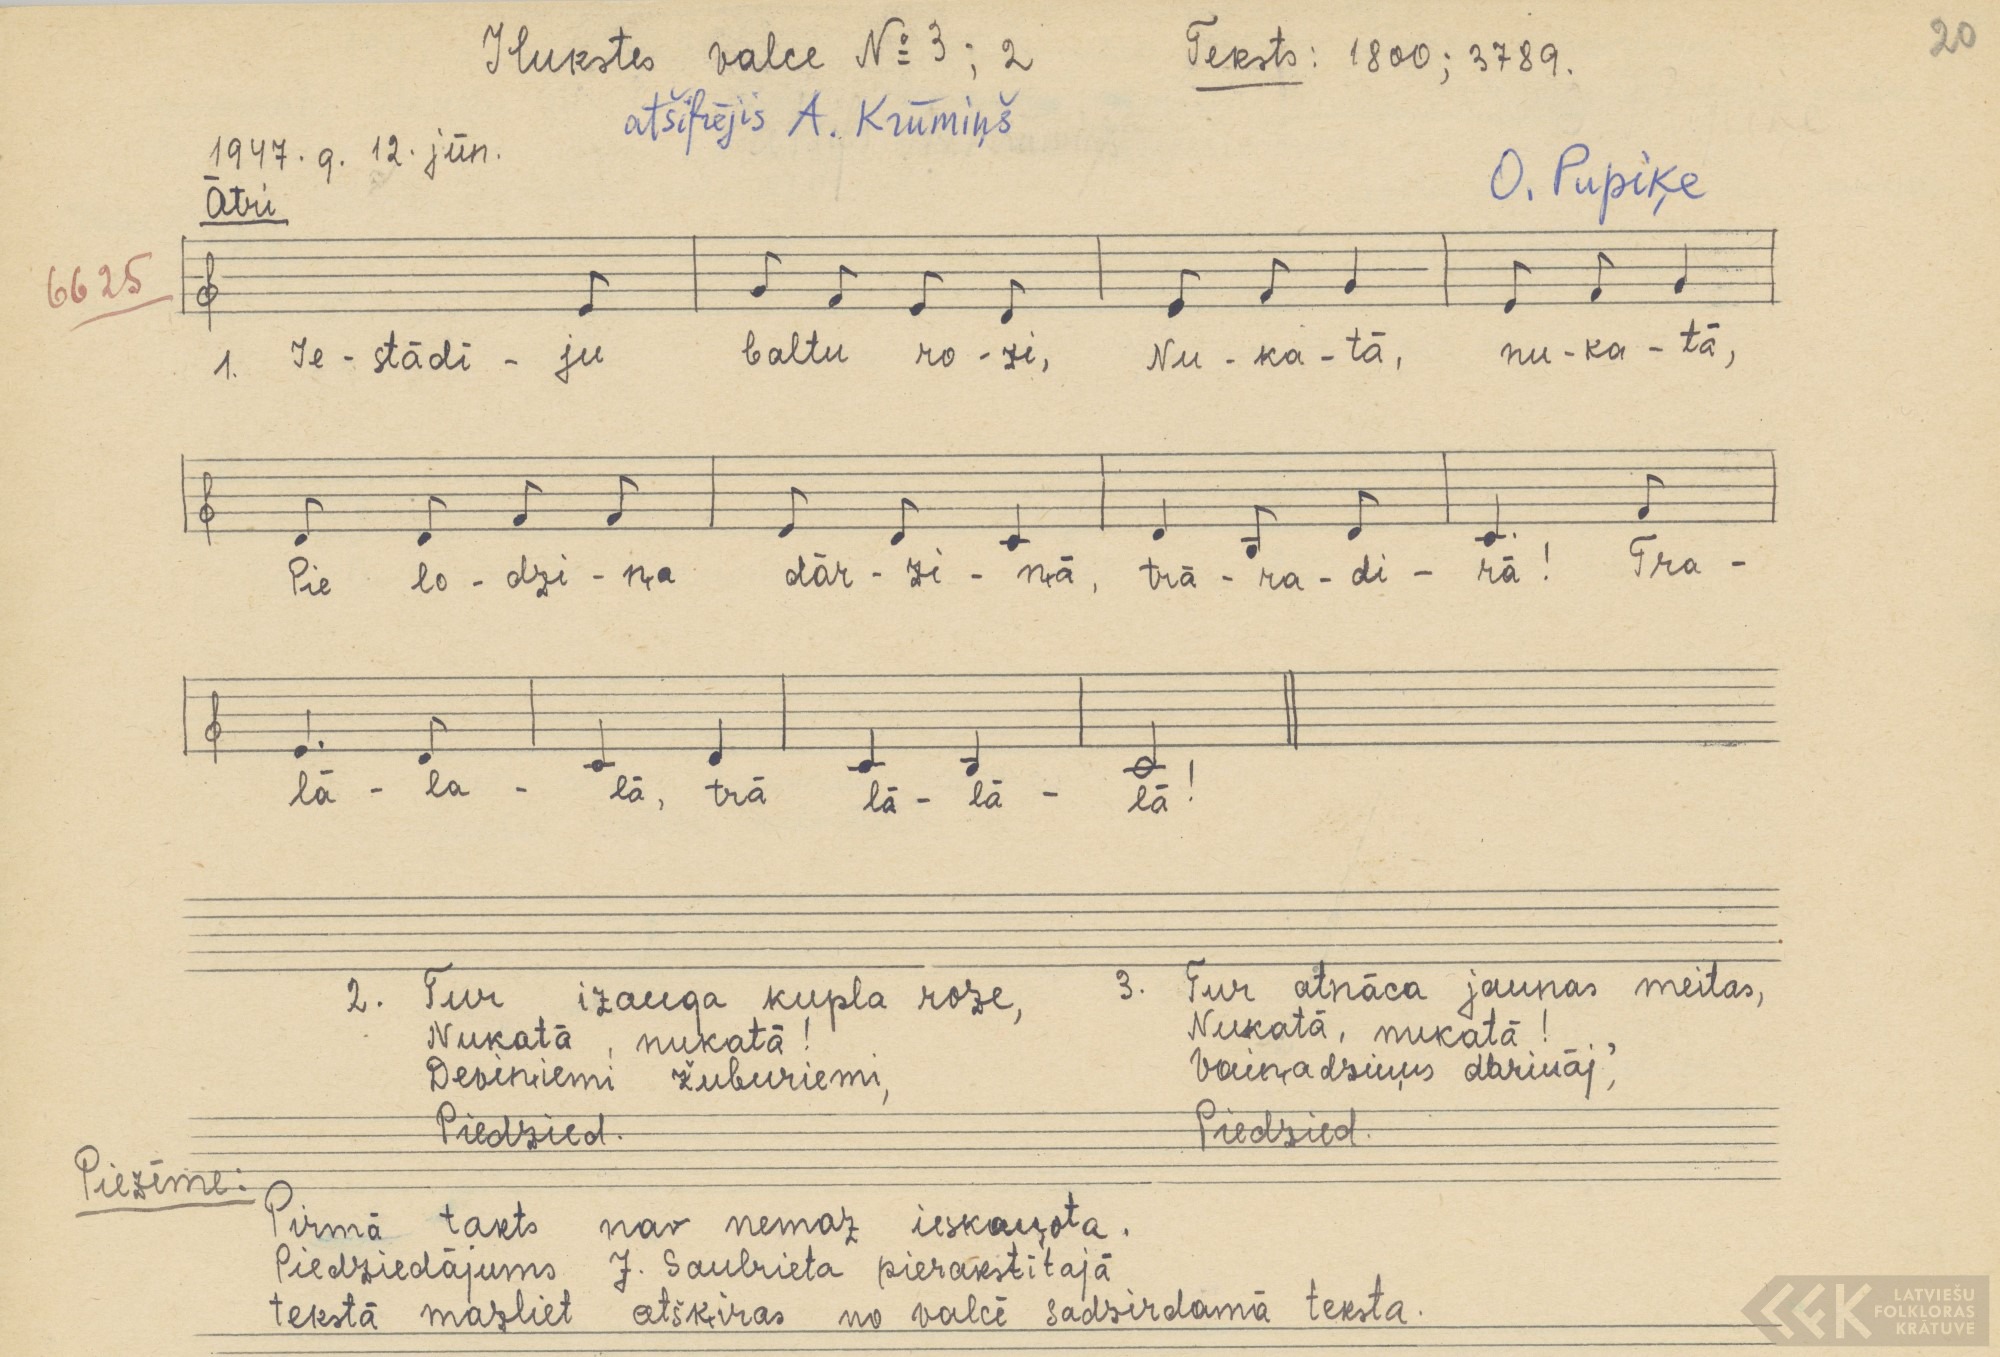 Ilukstes valce № 3; 2 Teksts: 1800; 3789. 20
atšifrējis A. Krūmiņš
1947. g. 12. jūn.
O. Pupiķe
Ātri
6625
1. Ie - stādī - ju baltu ro - zi, Nu - ka - tā, nu - ka - tā,
Pie lo - dzi - ņa dār - zi - ņā, trā - ra - di - rā! Tra -
lā - la - lā, trā lā - lā - lā!
2. Tur izauga kupla roze, 3. Tur atnāca jaunas meitas,
Nukatā, nukatā! Nukatā, nukatā!
Deviņiemi žuburiemi, Vaiņadziņus darināj',
Piedzied. Piedzied.
Piezīme:
Pirmā takts nav nemaz ieskaņota.
Piedziedājums J. Saubrieta pierakstītajā
tekstā mazliet atšķiras no valcē sadzirdamā teksta.
LATVIEŠU
FOLKLORAS
KRĀTUVE